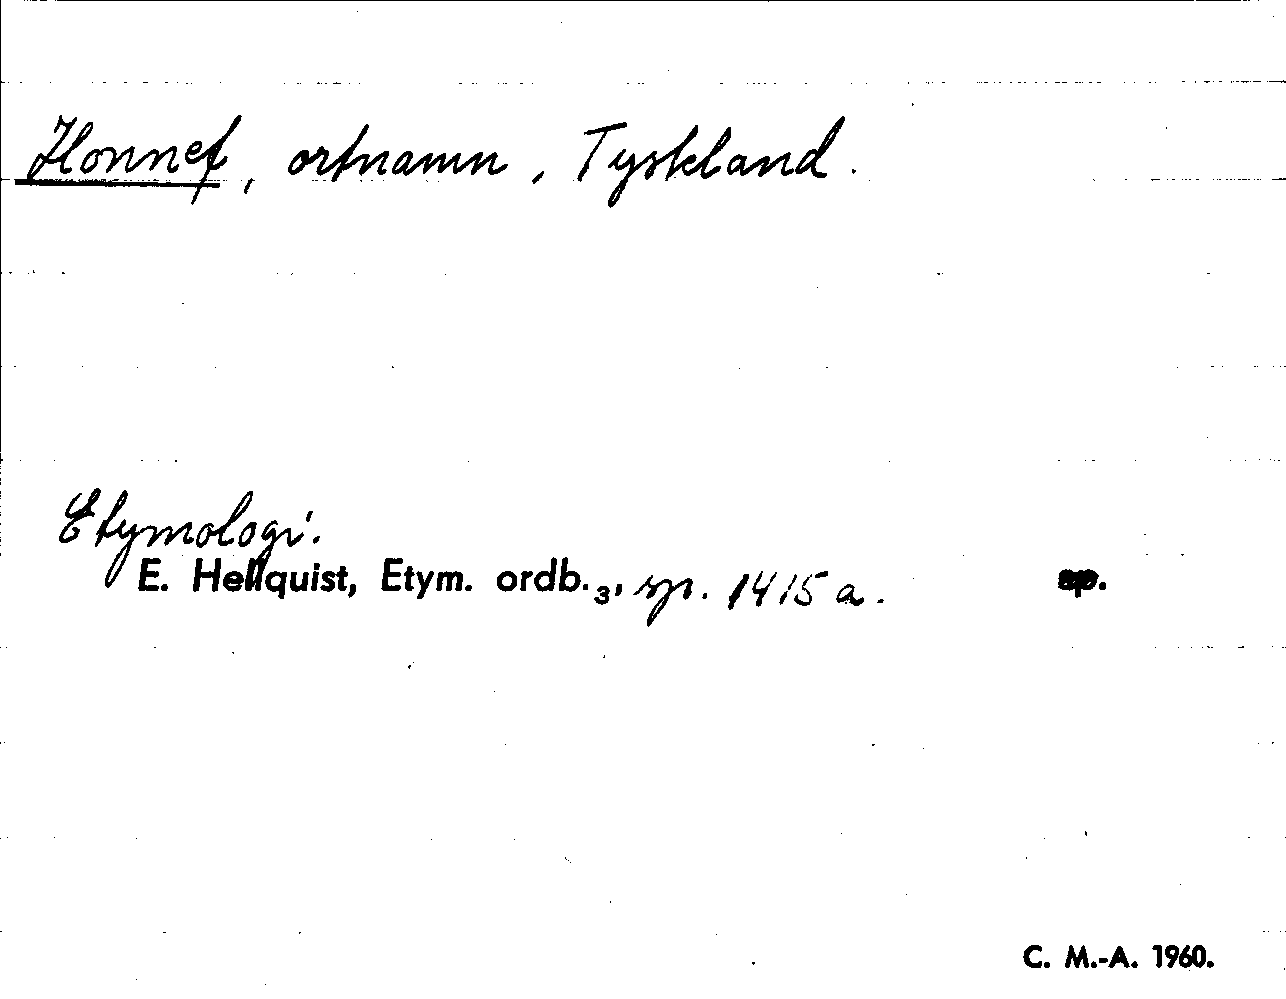 Honnef, ortnamn, Tyskland.
Etymologi.
E. Hellquist, Etym. ordb.₃, sp. 1415 a. sp.
C. M.-A. 1960.